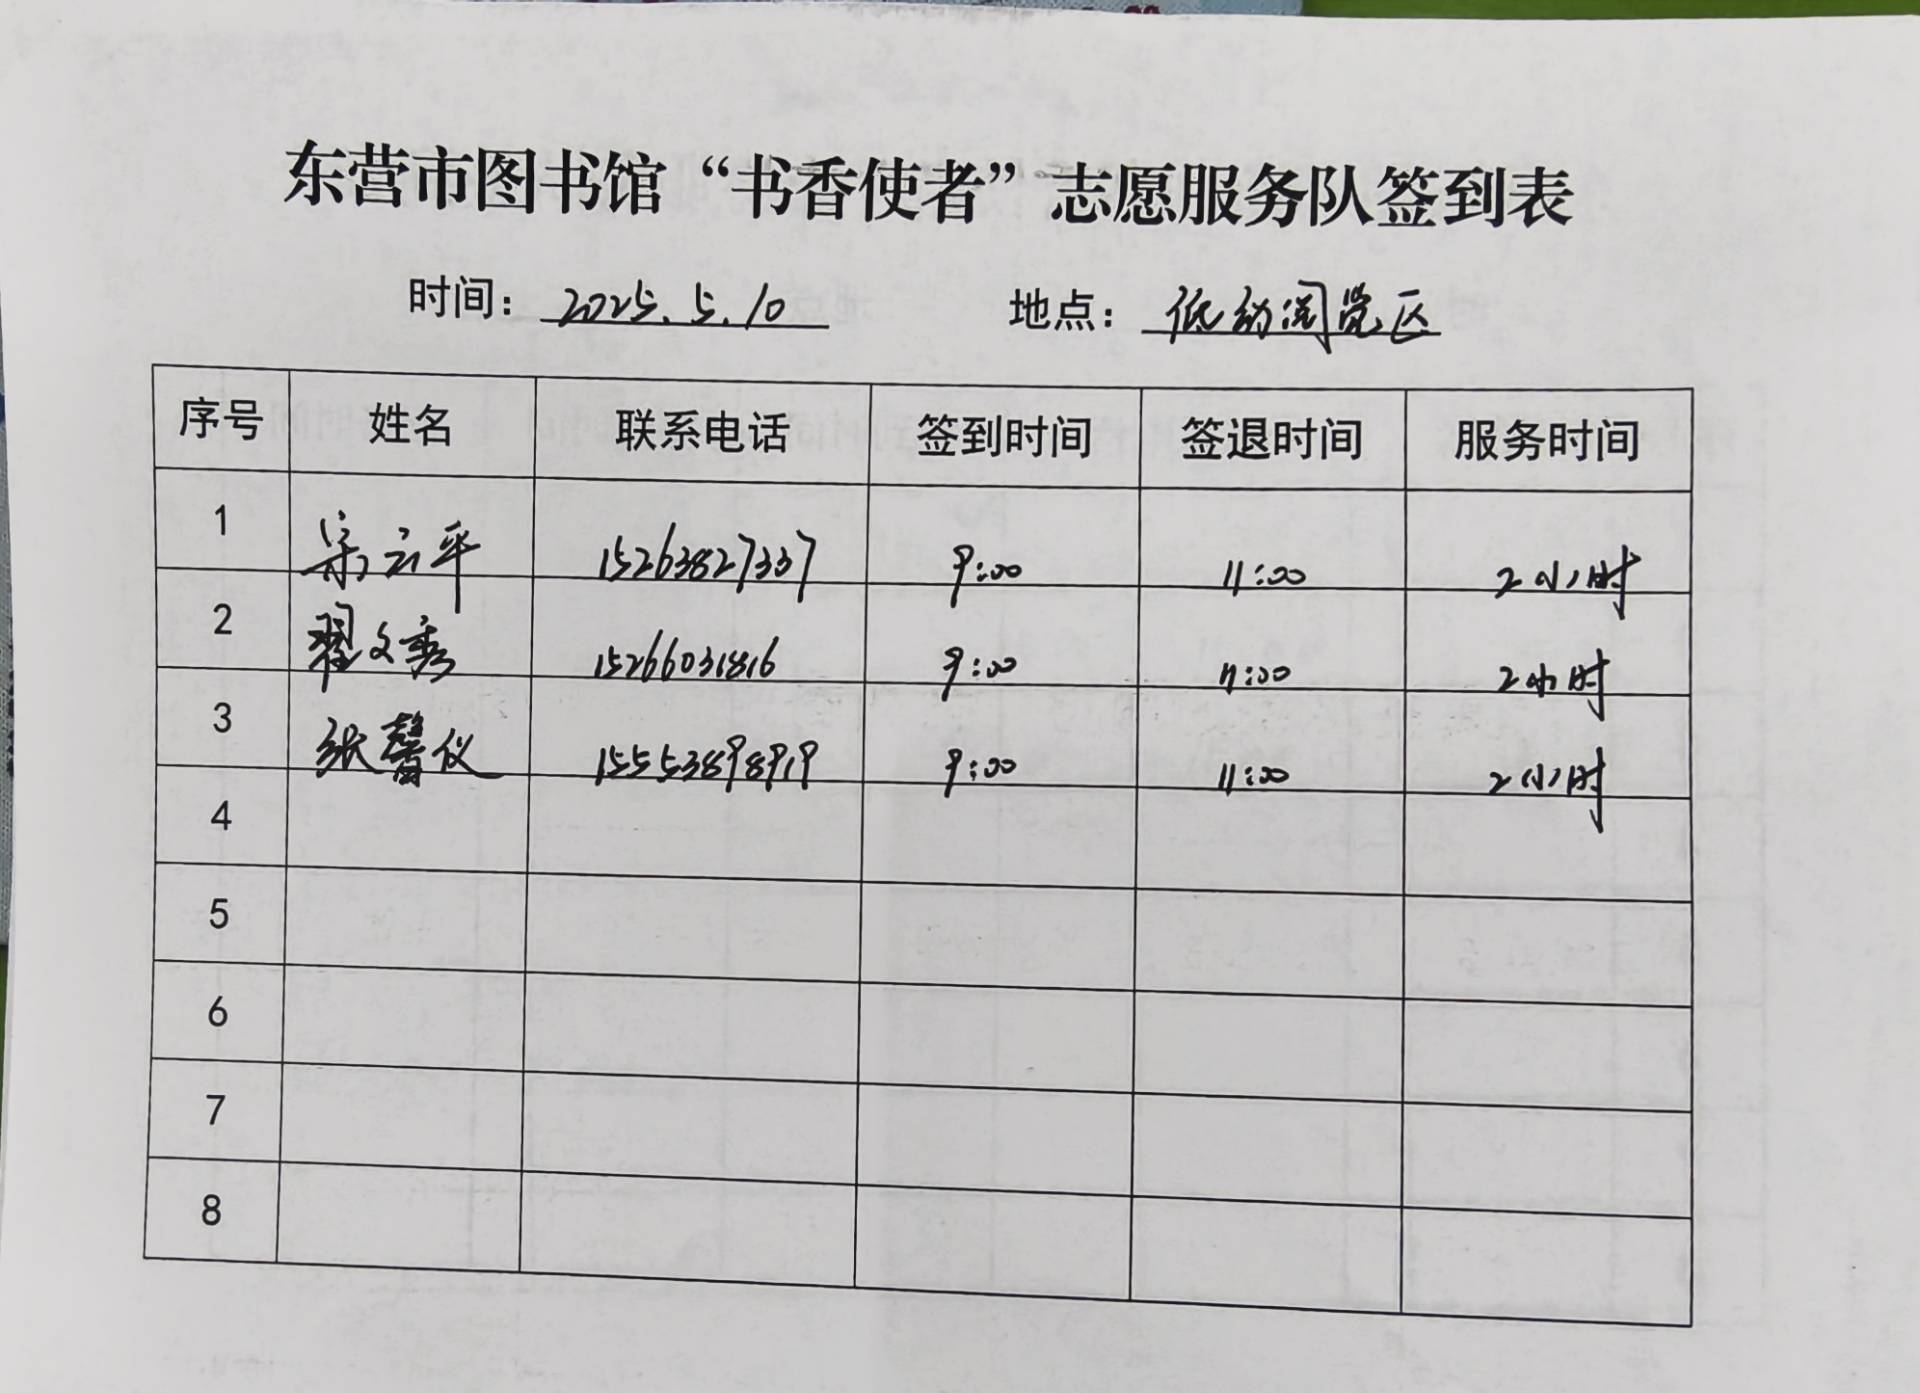 东营市图书馆“书香使者”志愿服务队签到表
时间：2025.5.10 地点：低幼阅览区
序号 姓名 联系电话 签到时间 签退时间 服务时间
1 宗云平 15263827337 9:00 11:00 2小时
2 翟文秀 15266031816 9:00 11:00 2小时
3 张馨仪 15553898919 9:00 11:00 2小时
4
5
6
7
8